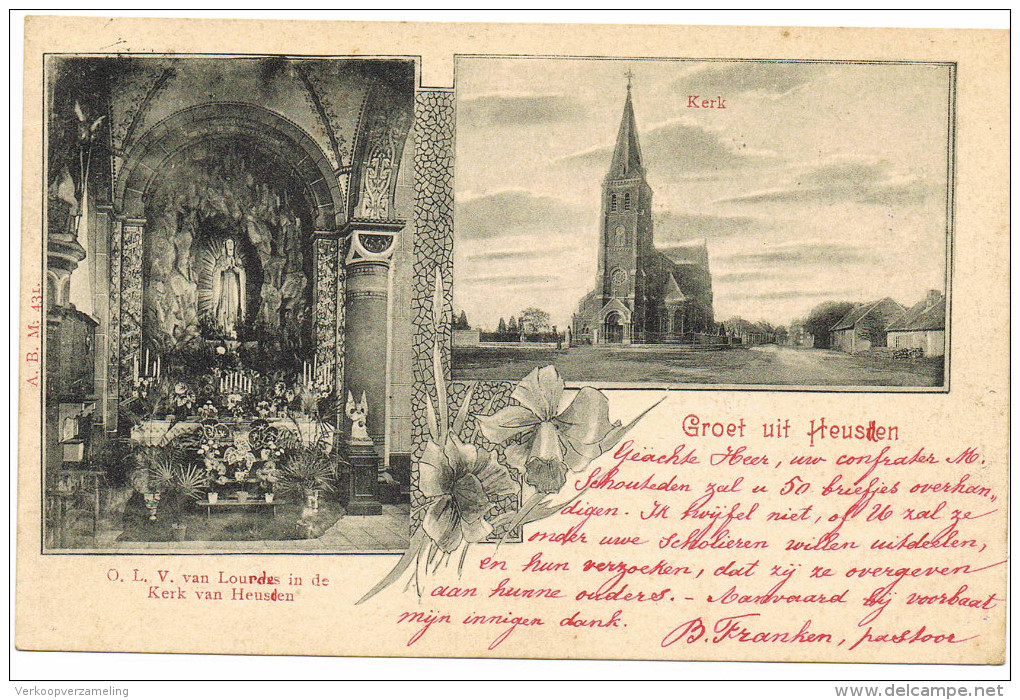 Kerk
A. B. M. 431.
O. L. V. van Lourdes in de
Kerk van Heusden
Groet uit Heusden
Geachte Heer, uw confrater M.
Schouteden zal u 50 briefjes overhan„
digen. Ik twijfel niet, of U zal ze
onder uwe scholieren willen uitdeelen,
en hun verzoeken, dat zij ze overgeven
aan hunne ouders. - Aanvaard bij voorbaat
mijn innigen dank. B. Franken, pastoor
Verkoopverzameling
www.delcampe.net